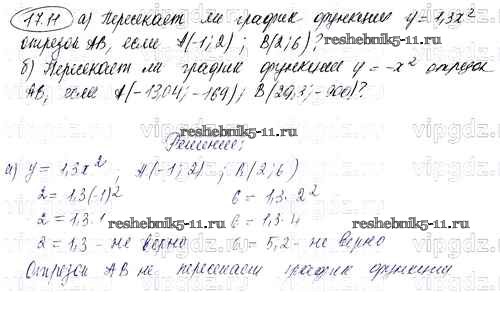 17.11 а) Пересекает ли график функции y = 1,3x²
отрезок AB, если A(-1; 2) ; B(2; 6)?
б) Пересекает ли график функции y = -x² отрезок
AB, если A(-13,04; -169); B(29,3; -900)?
reshebnik5-11.ru
Решение:
а) y = 1,3x² ; A(-1; 2) ; B(2; 6)
2 = 1,3(-1)² 6 = 1,3·2²
2 = 1,3·1 6 = 1,3·4
reshebnik5-11.ru
2 = 1,3 - не верно 6 = 5,2 - не верно
Отрезок AB не пересекает график функции